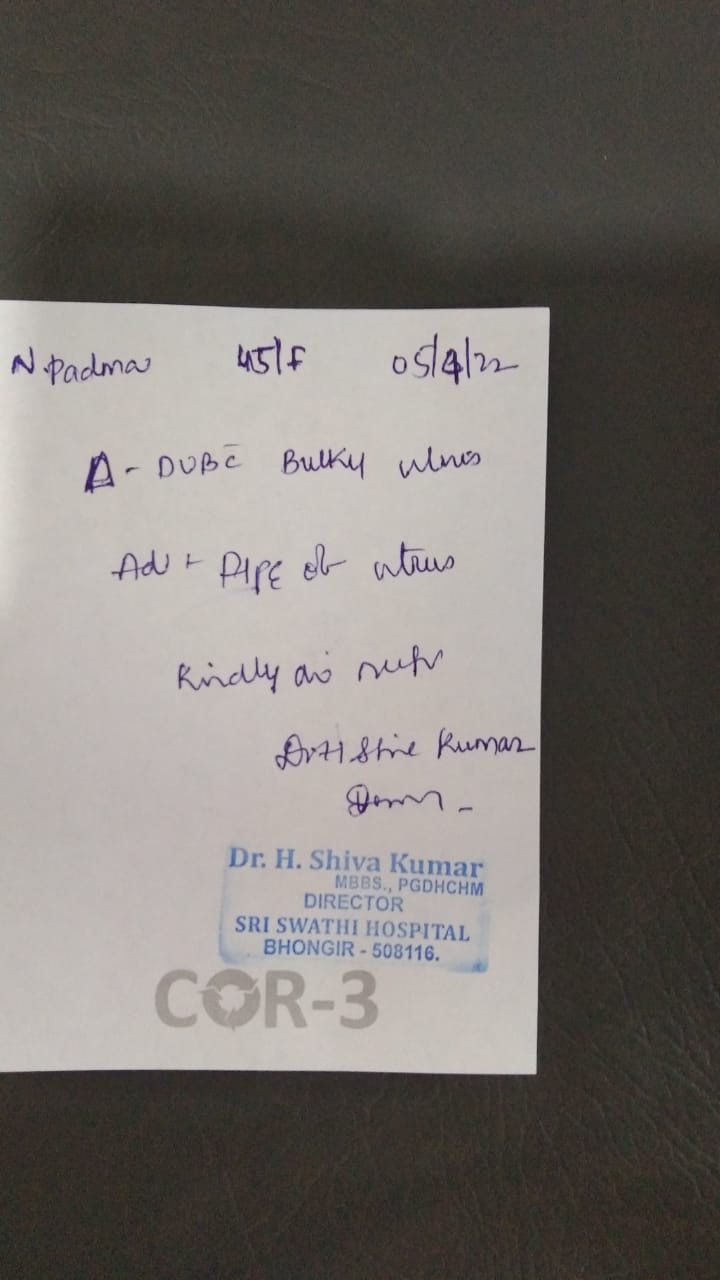 N. Padma 45/F 05/4/22
Δ - DUB c̄ Bulky utrus
Adv HPE of utrus
Kindly do
Dr H Shive Kumar
Dr. H. Shiva Kumar
MBBS., PGDHCHM
DIRECTOR
SRI SWATHI HOSPITAL
BHONGIR - 508116.
COR-3